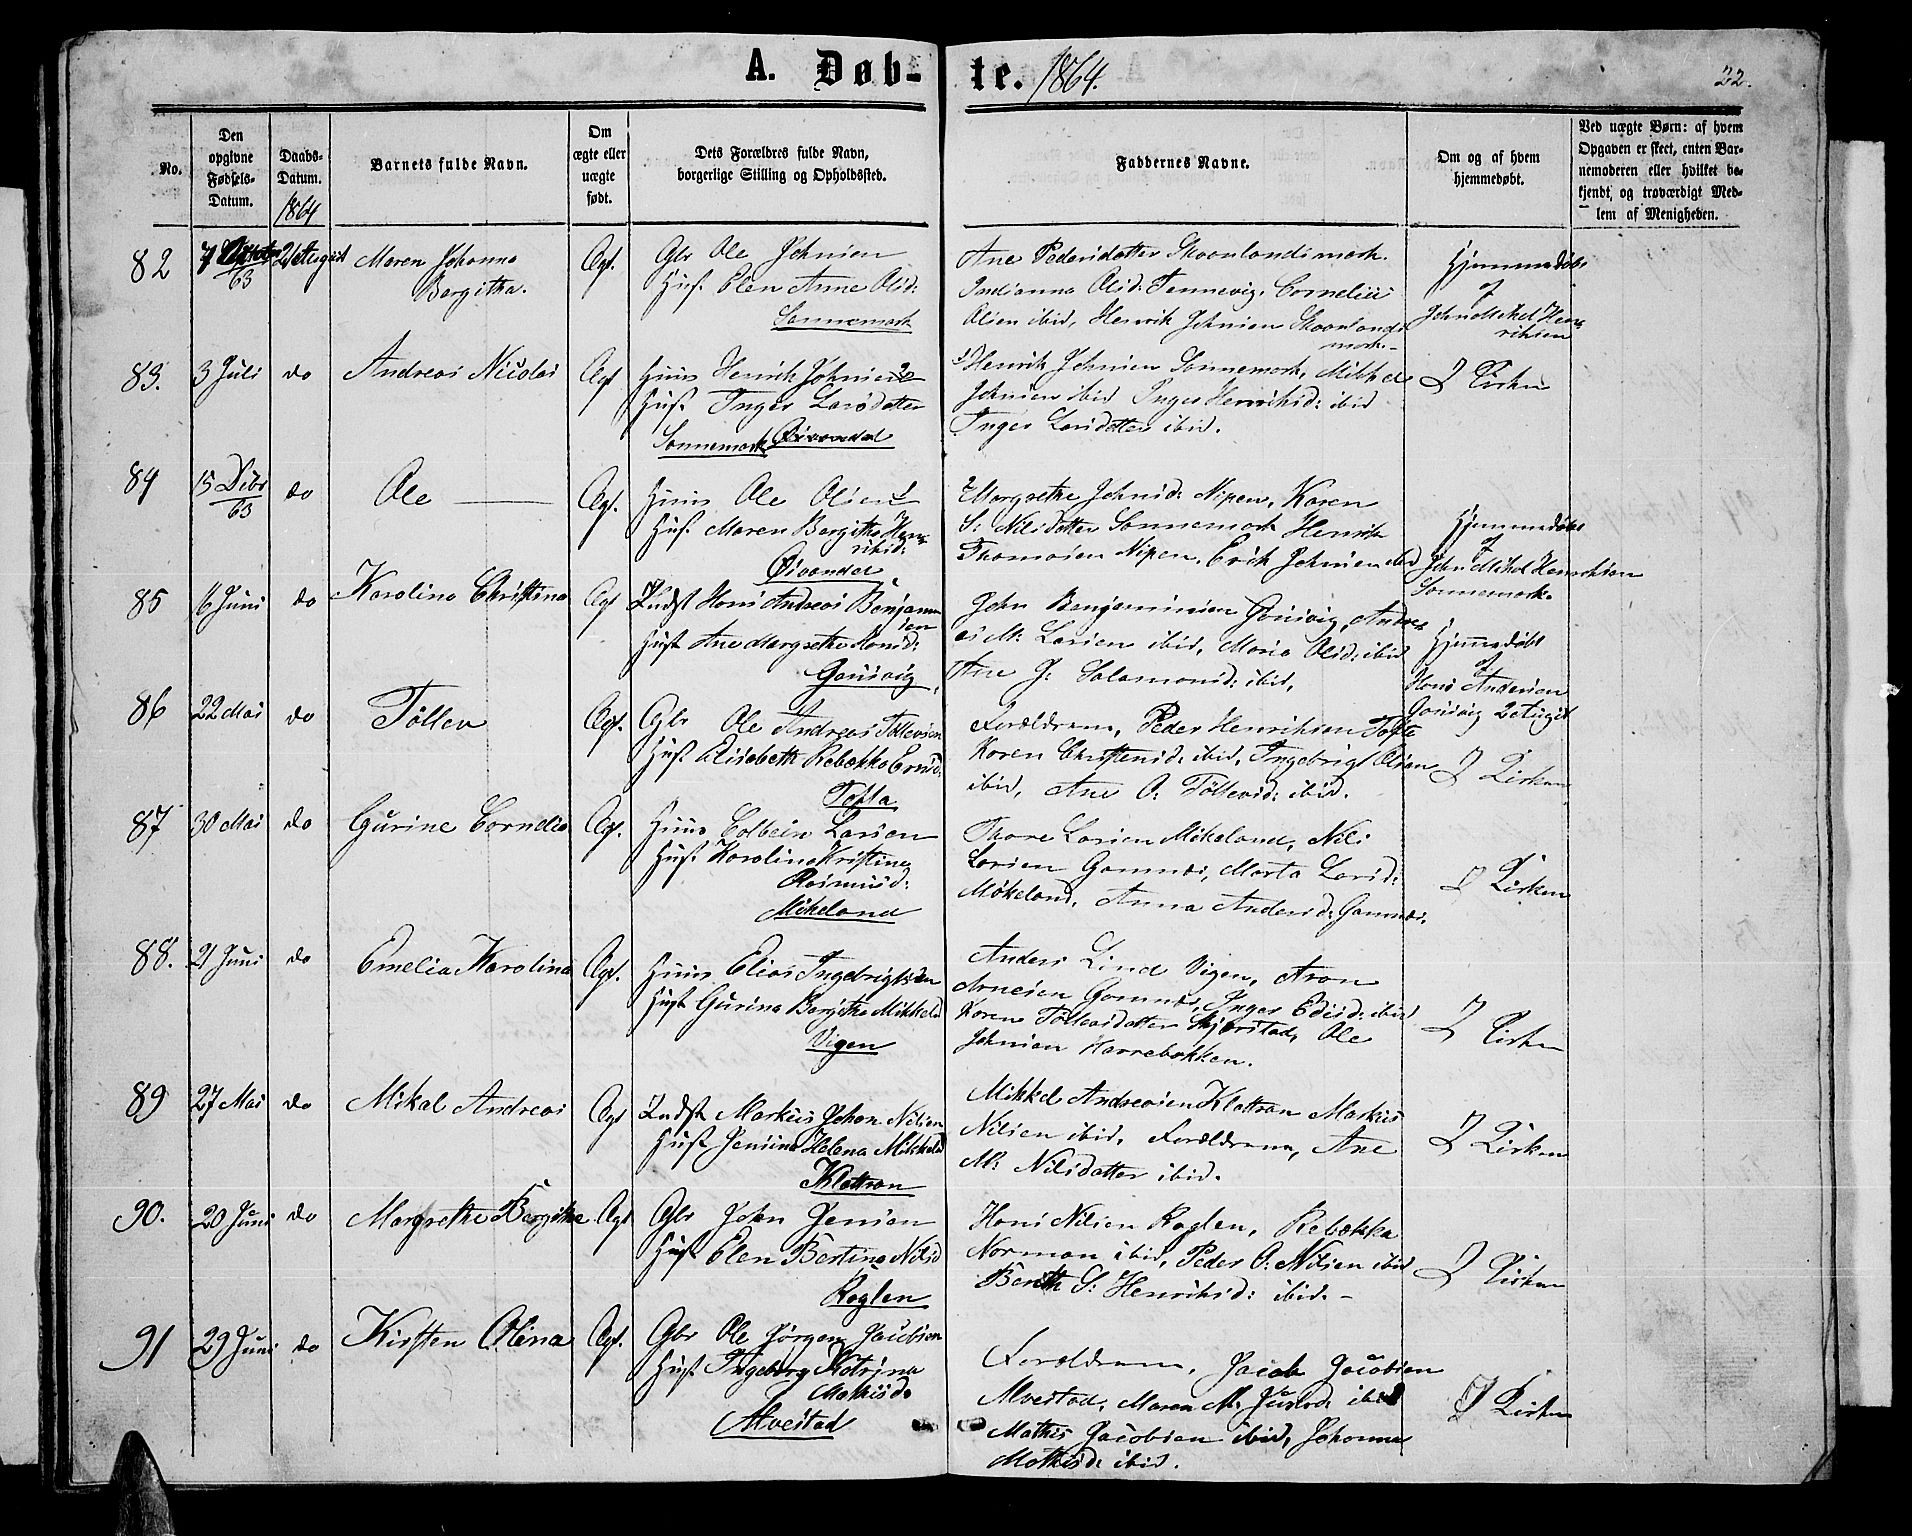 A. Døb-te. 1864. 22.
No.
Den opgivne Fødsels-Datum.
Daabs-Datum. 1864
Barnets fulde Navn.
Om ægte eller uægte født.
Dets Forældres fulde Navn, borgerlige Stilling og Opholdssted.
Faddernes Navne.
Om og af hvem hjemmedøbt.
Ved uægte Børn: af hvem Opgaven er skeet, enten Barnemoderen eller hvilket bekjendt og troværdigt Medlem af Menigheden.
82 63 21 August Maren Johanna Bergitha. Ægt.
Gbr Ole Johnsen
Hust. Elen Anne Olsd:
Sannemark
Ane Pedersdatter Skaanlandsmark.
Olsd. Tennevig. Cornelius
Olsen ibid, Henrik Johnsen Skaanlandsmark.
Hjemmedøbt
af
John Mikel Henriksen
83. 3 Juli do Andreas Nicolai Ægt
Huus Henrik Johnsen
Hust. Inger Larsdatter
Sannemark Øivandet
Henrik Johnsen Sannemark, Mikkel
Johnsen ibid Inger Henriksd: ibid
Inger Larsdatter ibid.
I Kirken
84 15 Dcbr 63 do Ole Ægt.
Huus Ole Olsen
Hust. Maren Bergitha Henriksd:
Øivandet
Margrethe Johnsd: Nipen, Karen
S: Nilsdatter Sannemark Henrik
Thomasen Nipen, Erik Johnsen ibid
Hjemmedøbt
af
John Mikel Henriksen
Sannemark.
85 6 Juni do Karolina Christina Ægt
Indst Hans Andreas Benjaminsen
Hust Ane Margrethe Hansd:
Gausvig
John Benjaminsen Gausvig, Andreas
M: Larsen ibid, Maria Olsd: ibid
Ane J: Salamonsd: ibid,
Hjemmedøbt
af
Hans Andersen
Gausvig 2 August
86 22 Mai do Töllev Ægt.
Gbr Ole Andreas Töllevsen
Hust Elisabeth Rebekka
Tofta
Forældrene, Peder Henriksen Tofte
Karen Christensd: ibid, Ingebrigt Olsen
ibid, Ane O: Töllevsd: ibid.
I Kirken
87 30 Mai do Gurine Cornelia Ægt.
Huus Colbein Larsen
Hust Karolina Kristine
Rasmusd:
Mökeland
Thore Larsen Mökeland, Nils
Larsen Gamnæs, Marta Larsd:
Mökeland, Anna Andersd: Gamnæs.
I Kirken
88. 21 Juni do Emelia Karolina Ægt.
Huus Elias Ingebrigtsen
Hust Gurina Bergitha Mikkelsd
Vigen
Anders Lind Vigen, Aron
Arnesen Gamnæs, Inger Edisd: ibid
Karen Töllevsdatter Skjærstad, Ole
Johnsen Harrebakken.
I Kirken
89 27 Mai do Mikal Andreas Ægt
Indst Markus Johan Nilsen
Hust Jensina Helena Mikkelsd
Klottran
Mikkel Andreasen Klottran Markus
Nilsen ibid, Forældrene, Ane
M: Nilsdatter ibid.
I Kirken
90. 20 Juni do Margrethe Bergitha Ægt
Gbr John Jensen
Hust Elen Bertina Nilsd
Roglen
Hans Nilsen Roglen, Rebekka
Norman ibid, Peder O: Nilsen ibid
Berith S: Henriksd: ibid.
I Kirken
91 29 Juni do Kirsten Olina Ægt.
Gbr Ole Jörgen Jacobsen
Hust Ingeborg Katrina
Mathisd.
Alvestad
Forældrene, Jacob Jacobsen
Alvestad, Maren M. ibid
Mathis Jacobsen ibid, Johanna
Mathisd: ibid.
I Kirken